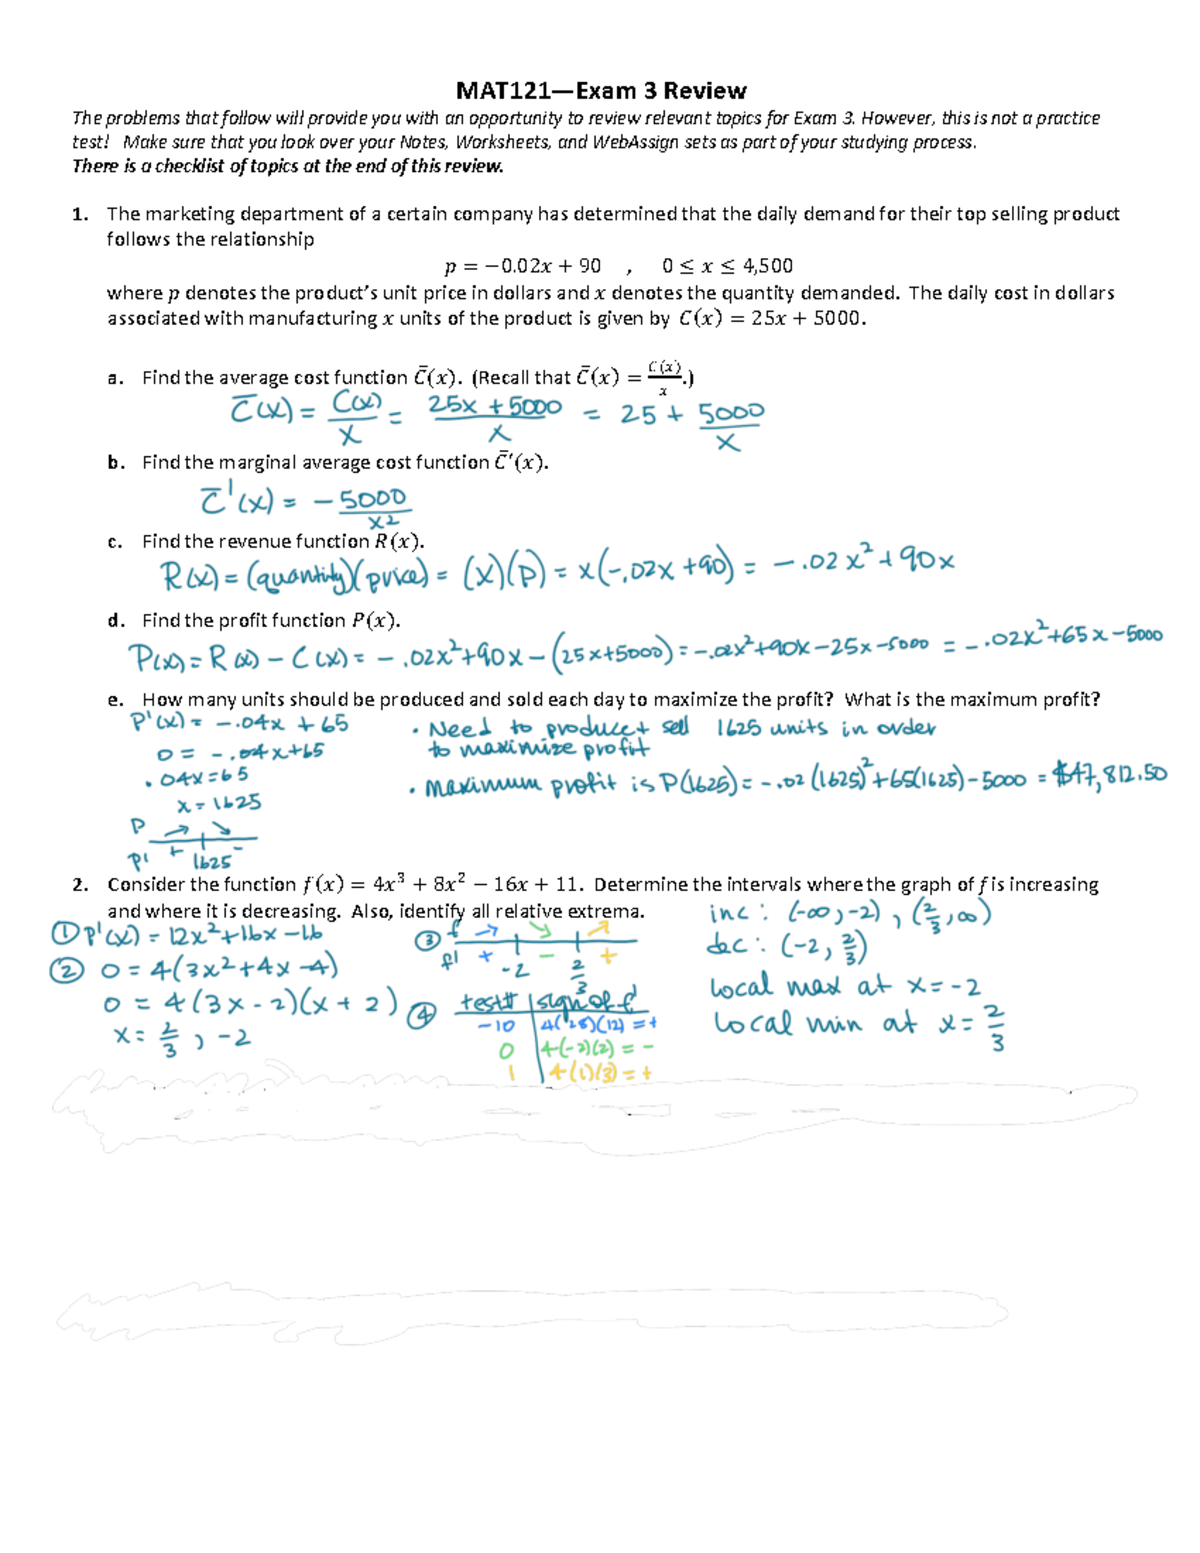 MAT121—Exam 3 Review
The problems that follow will provide you with an opportunity to review relevant topics for Exam 3. However, this is not a practice
test! Make sure that you look over your Notes, Worksheets, and WebAssign sets as part of your studying process.
There is a checklist of topics at the end of this review.
1. The marketing department of a certain company has determined that the daily demand for their top selling product
follows the relationship
p = −0.02x + 90 , 0 ≤ x ≤ 4,500
where p denotes the product's unit price in dollars and x denotes the quantity demanded. The daily cost in dollars
associated with manufacturing x units of the product is given by C(x) = 25x + 5000.
a. Find the average cost function C̄(x). (Recall that C̄(x) = C(x)/x.)
C̄(x) = C(x)/x = (25x + 5000)/x = 25 + 5000/x
b. Find the marginal average cost function C̄'(x).
C̄'(x) = −5000/x²
c. Find the revenue function R(x).
R(x) = (quantity)(price) = (x)(p) = x(−.02x + 90) = −.02x² + 90x
d. Find the profit function P(x).
P(x) = R(x) − C(x) = −.02x² + 90x − (25x + 5000) = −.02x² + 90x − 25x − 5000 = −.02x² + 65x − 5000
e. How many units should be produced and sold each day to maximize the profit? What is the maximum profit?
P'(x) = −.04x + 65
0 = −.04x + 65
.04x = 65
x = 1625
P
P' + 1625 −
• Need to produce + sell 1625 units in order
to maximize profit
• Maximum profit is P(1625) = −.02(1625)² + 65(1625) − 5000 = $47,812.50
2. Consider the function f(x) = 4x³ + 8x² − 16x + 11. Determine the intervals where the graph of f is increasing
and where it is decreasing. Also, identify all relative extrema.
① P'(x) = 12x² + 16x − 16
② 0 = 4(3x² + 4x − 4)
0 = 4(3x − 2)(x + 2)
x = 2/3, −2
③ f
f' + −2 − 2/3 +
④ test# | sign of f'
−10 | 4(−28)(12) = +
0 | 4(−2)(2) = −
1 | 4(1)(3) = +
inc: (−∞, −2), (2/3, ∞)
dec: (−2, 2/3)
local max at x = −2
local min at x = 2/3